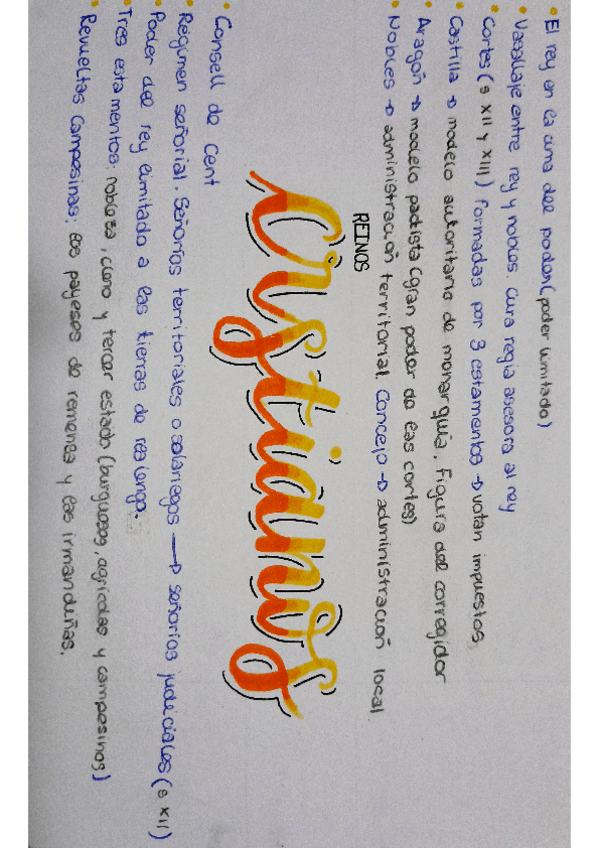 • El rey en la cima del poder (poder limitado)
• Vasallaje entre rey y nobles. Cura regia asesora al rey
• Cortes (s XII y XIII) formadas por 3 estamentos → votan impuestos
• Castilla → modelo autoritario de monarquía. Figura del corregidor
• Aragón → modelo pactista (gran poder de las cortes)
• Nobles → administración territorial. Concejo → administración local
REINOS
Cristianos
• Consell de Cent
• Régimen señorial. Señoríos territoriales o solariegos → señoríos judiciales (s XII)
• Poder del rey limitado a las tierras de realengo.
• Tres estamentos: nobleza, clero y tercer estado (burgueses, agrícolas y campesinos)
• Revueltas Campesinas: los payeses de remensa y los irmanduñas.